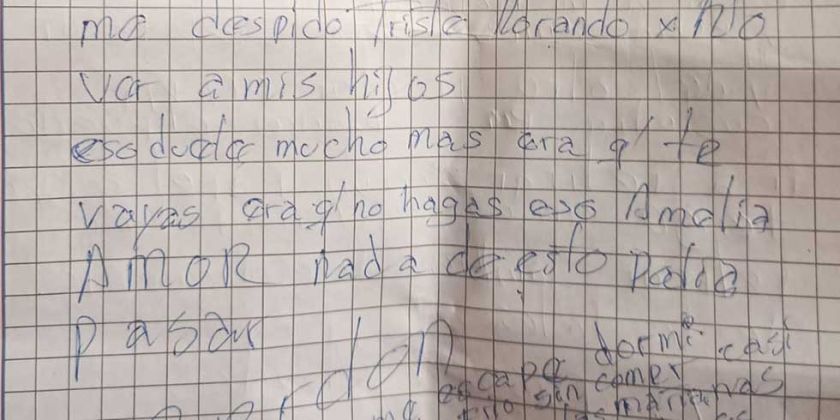 me despido triste llorando x no
ver a mis hijos
eso duele mucho mas ora q' te
vayas ora q' no hagas eso Amelia
AMOR nada de esto debia
pasar
dormi casi
escape sin comer